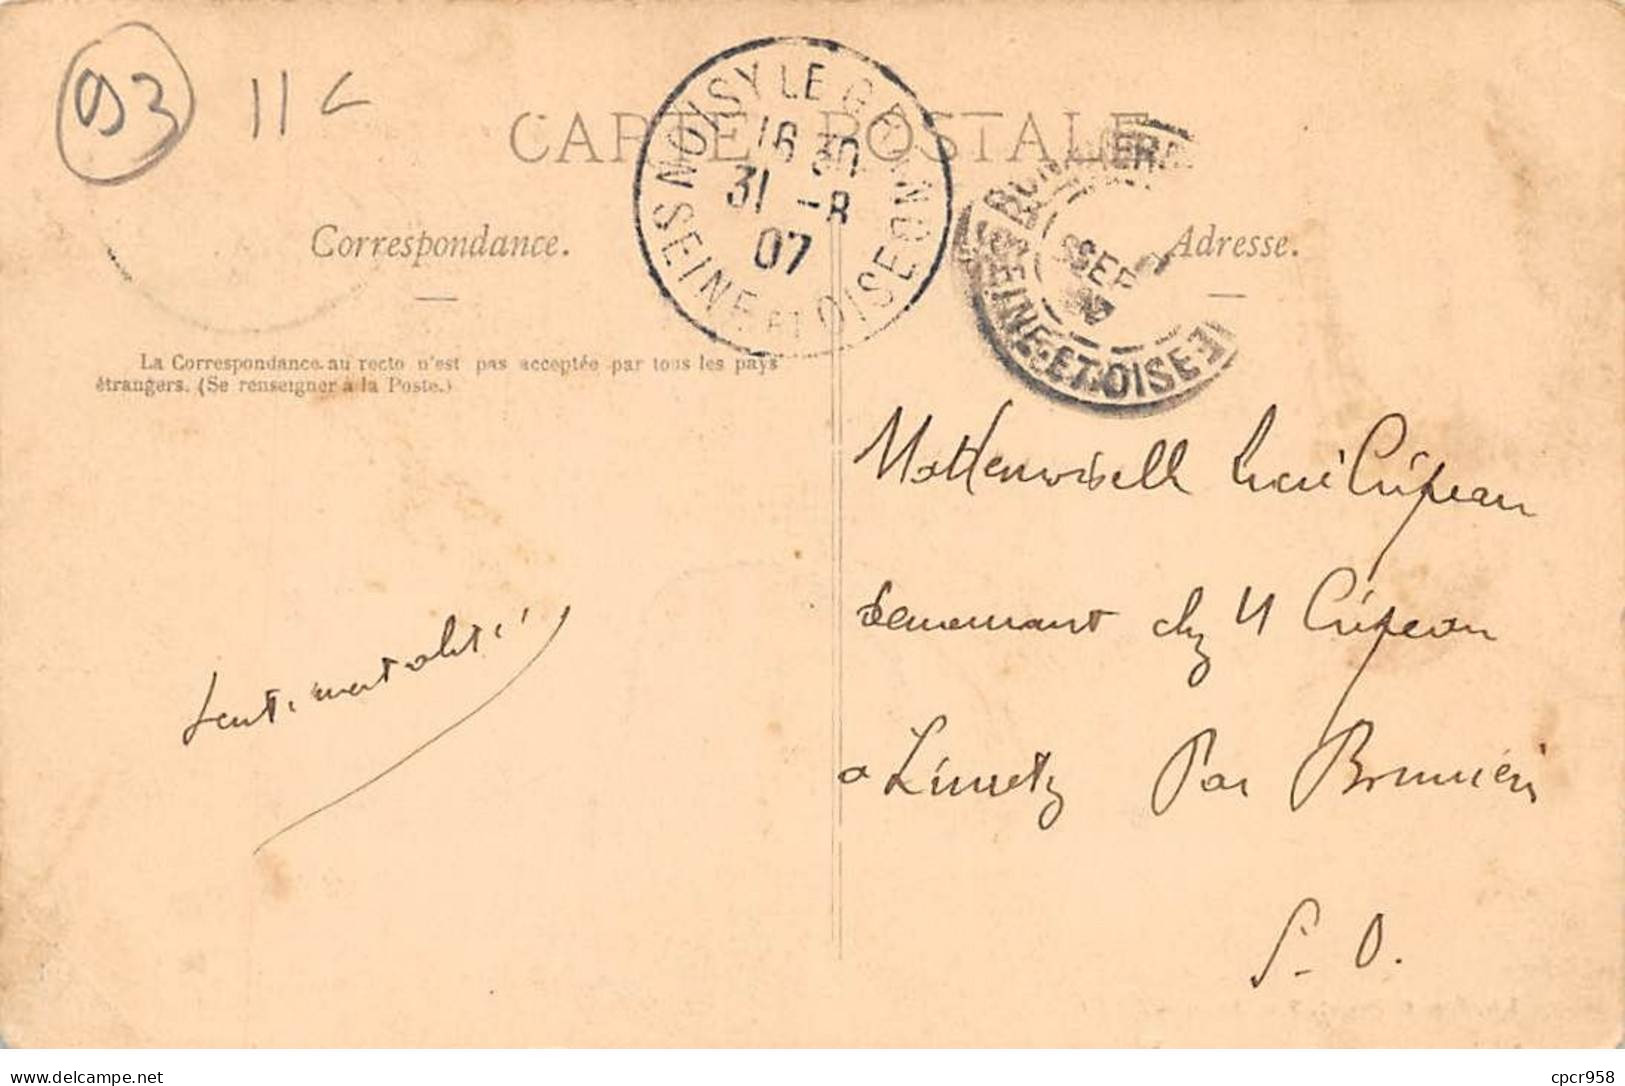 93
11 €
CARTE POSTALE
NOISY LE GRAND
16 30
31 -8
07
SEINE ET OISE
BONNIÈRES
SEPT
07
SEINE-ET-OISE
Correspondance.
Adresse.
La Correspondance au recto n'est pas acceptée par tous les pays
étrangers. (Se renseigner à la Poste.)
Mademoiselle Crépeau
demeurant chez M Crépeau
a Limetz Par Bonnières
S-O.
Sentimentalité
cpcr958